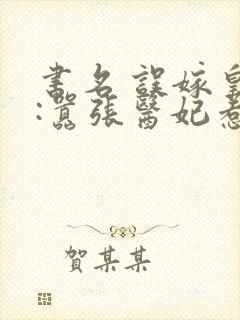 書名誤嫁皇
:囂張醫妃惹
賀某某